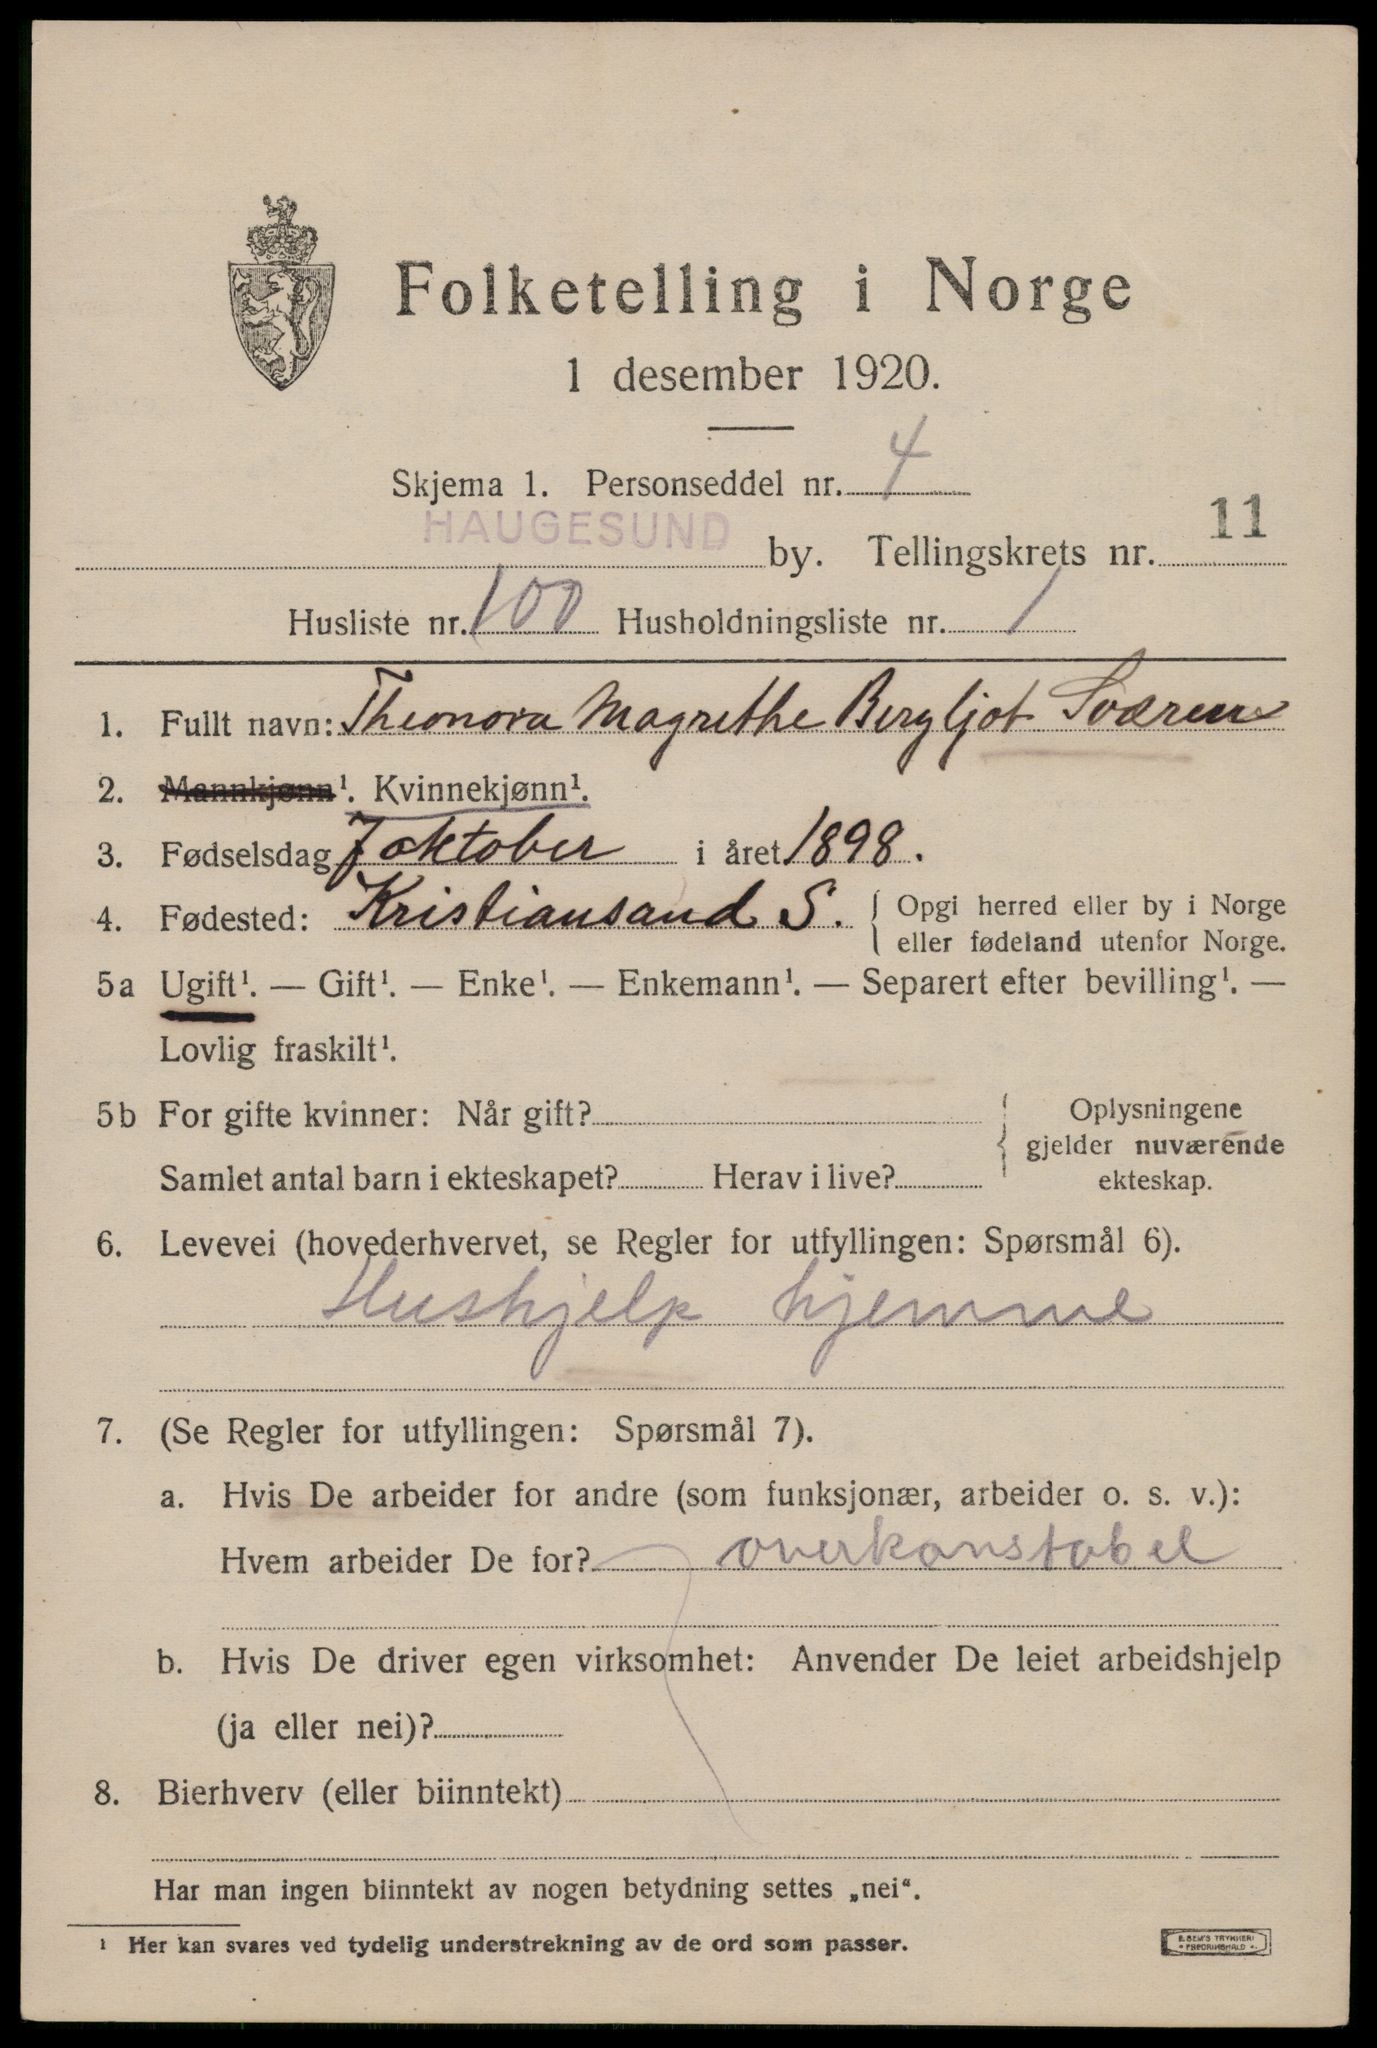 Folketelling i Norge
1 desember 1920.
Skjema 1. Personseddel nr. 4
HAUGESUND by. Tellingskrets nr. 11
Husliste nr. 100 Husholdningsliste nr. 1
1. Fullt navn: Theonora Magrethe Bergljot Sværen
2. Mannkjønn¹. Kvinnekjønn¹.
3. Fødselsdag 7 oktober i året 1898.
4. Fødested: Kristiansand S. { Opgi herred eller by i Norge
eller fødeland utenfor Norge.
5a Ugift¹. — Gift¹. — Enke¹. — Enkemann¹. — Separert efter bevilling¹. —
Lovlig fraskilt¹.
5b For gifte kvinner: Når gift? { Oplysningene
gjelder nuværende
Samlet antal barn i ekteskapet? Herav i live? ekteskap.
6. Levevei (hovederhvervet, se Regler for utfyllingen: Spørsmål 6).
Hushjelp hjemme
7. (Se Regler for utfyllingen: Spørsmål 7).
a. Hvis De arbeider for andre (som funksjonær, arbeider o. s. v.):
Hvem arbeider De for? overkonstabel
b. Hvis De driver egen virksomhet: Anvender De leiet arbeidshjelp
(ja eller nei)?
8. Bierhverv (eller biinntekt)
Har man ingen biinntekt av nogen betydning settes „nei“.
¹ Her kan svares ved tydelig understrekning av de ord som passer.
E. SEM'S TRYKKERI
• FREDRIKSHALD •